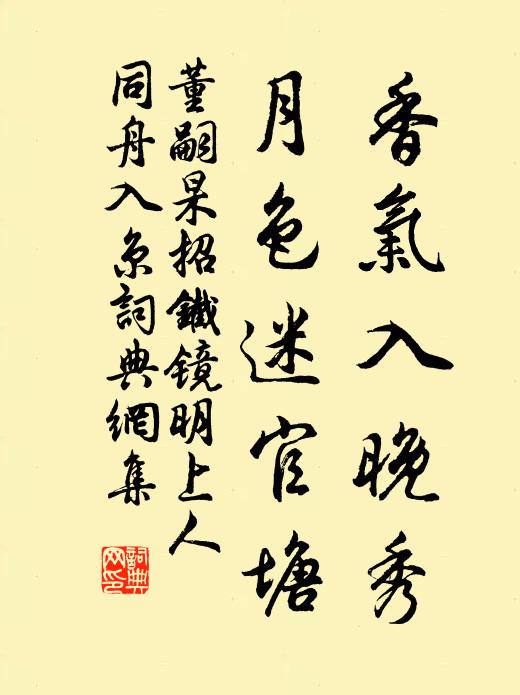 香氣入晚秀
月色迷官塘
董嗣杲招鐵镜明上人
同舟入京詞典網集
詞典网印